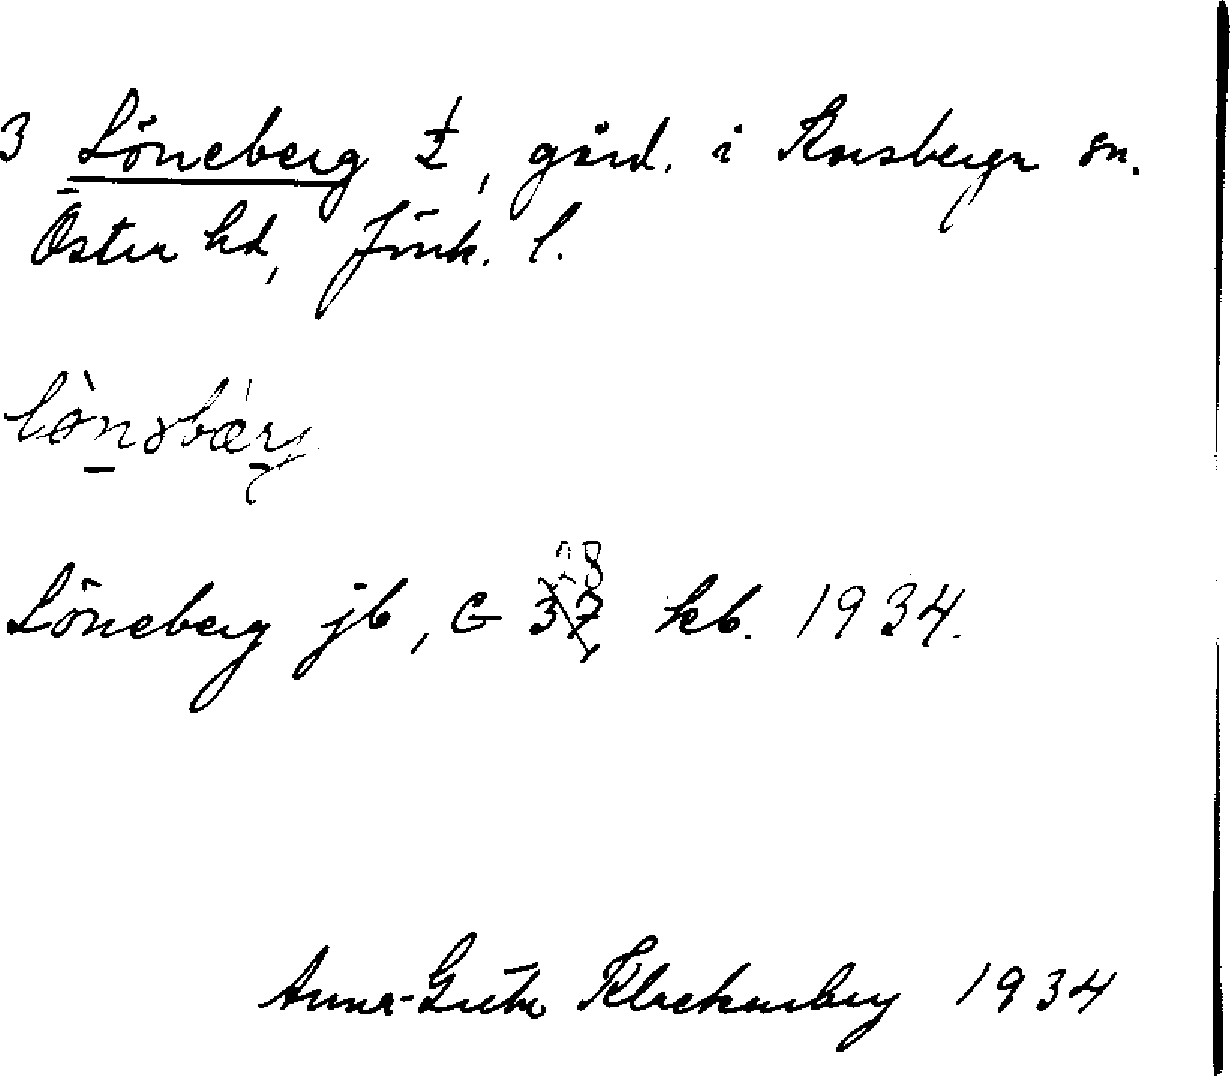 3 Löneberg 1/2, gård. i Korsberga sn.
Öster hd, Jönk. l.
lònabær
Löneberg jb, G 37 28 kb. 1934.
Anna-Greta Klackenberg 1934